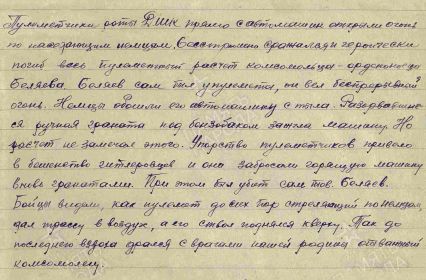 Пулеметчики роты ДШК прямо с автомашин открыли огонь
по наседающим немцам, бесстрашно сражался и героически
погиб весь пулеметный расчет комсомольца-орденоносца
Беляева. Беляев сам был у пулемета, он вел беспрерывный
огонь. Немцы обошли его автомашину с тыла. Разорвавшая-
ся ручная граната под бензобаком зажгла машину. Но
расчет не замечал этого. Упорство пулеметчиков привело
в бешенство гитлеровцев и они забросали горящую машину
вновь гранатами. При этом был убит сам тов. Беляев.
Бойцы видели, как пулемет до сих пор стрелявший по немцам,
дал трассу в воздух, а его ствол поднялся кверху. Так до
последнего вздоха дрался с врагами нашей родины отважный
комсомолец.